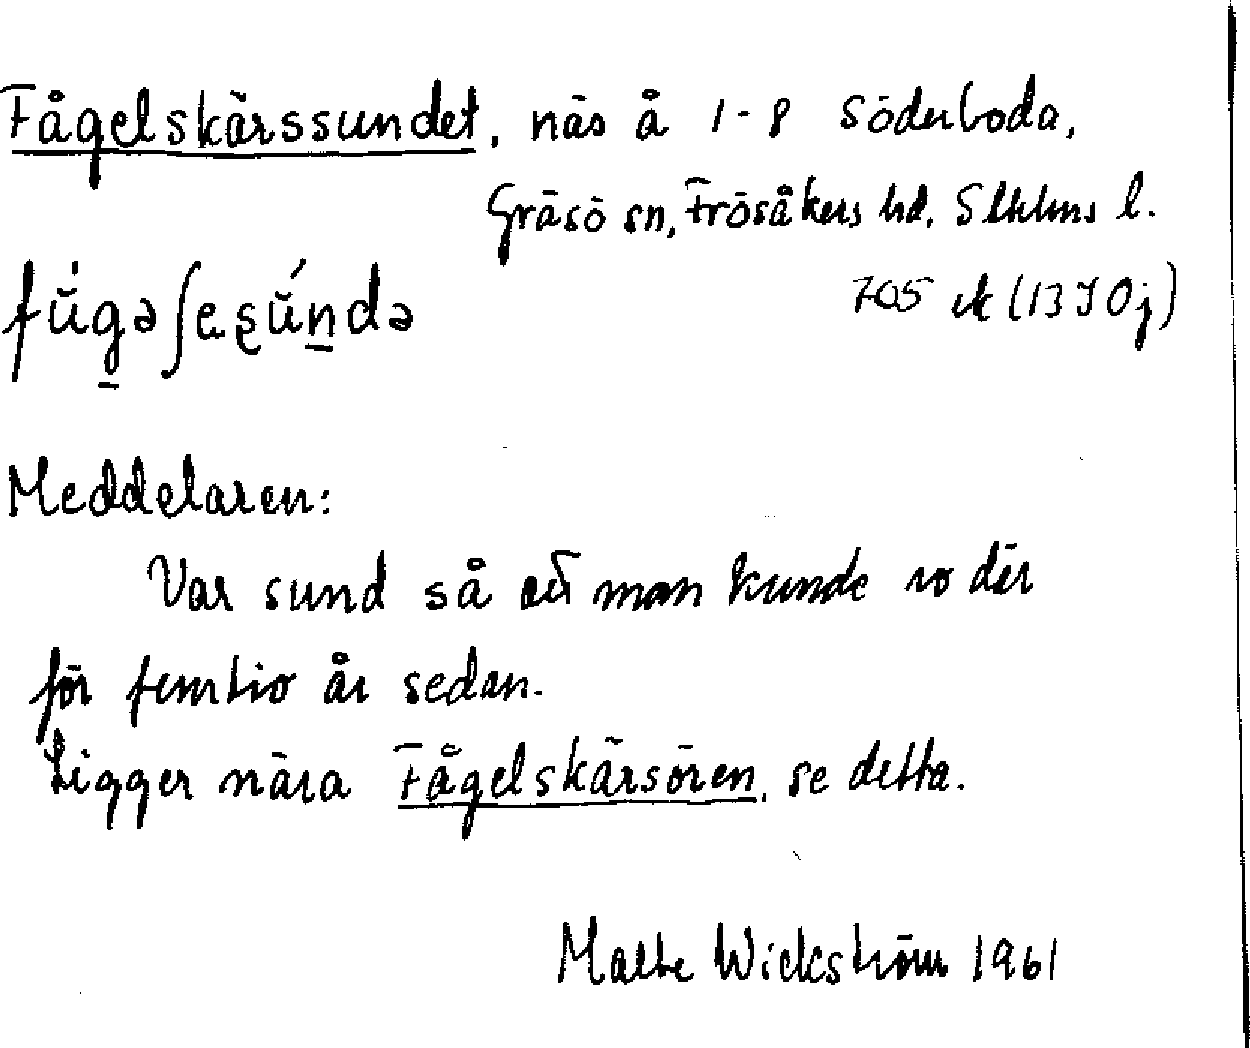 Fågelskärssundet, näs å 1-8 Söderboda,
Gräsö sn, Frösåkers hd, Sthlms l.
fŭ́gəʃeşŭ́ndə
705 ek (13 J 0j)
Meddelaren:
Var sund så att man kunde ro där
för femtio år sedan.
Ligger nära Fågelskärsören, se detta.
Malte Wickström 1961